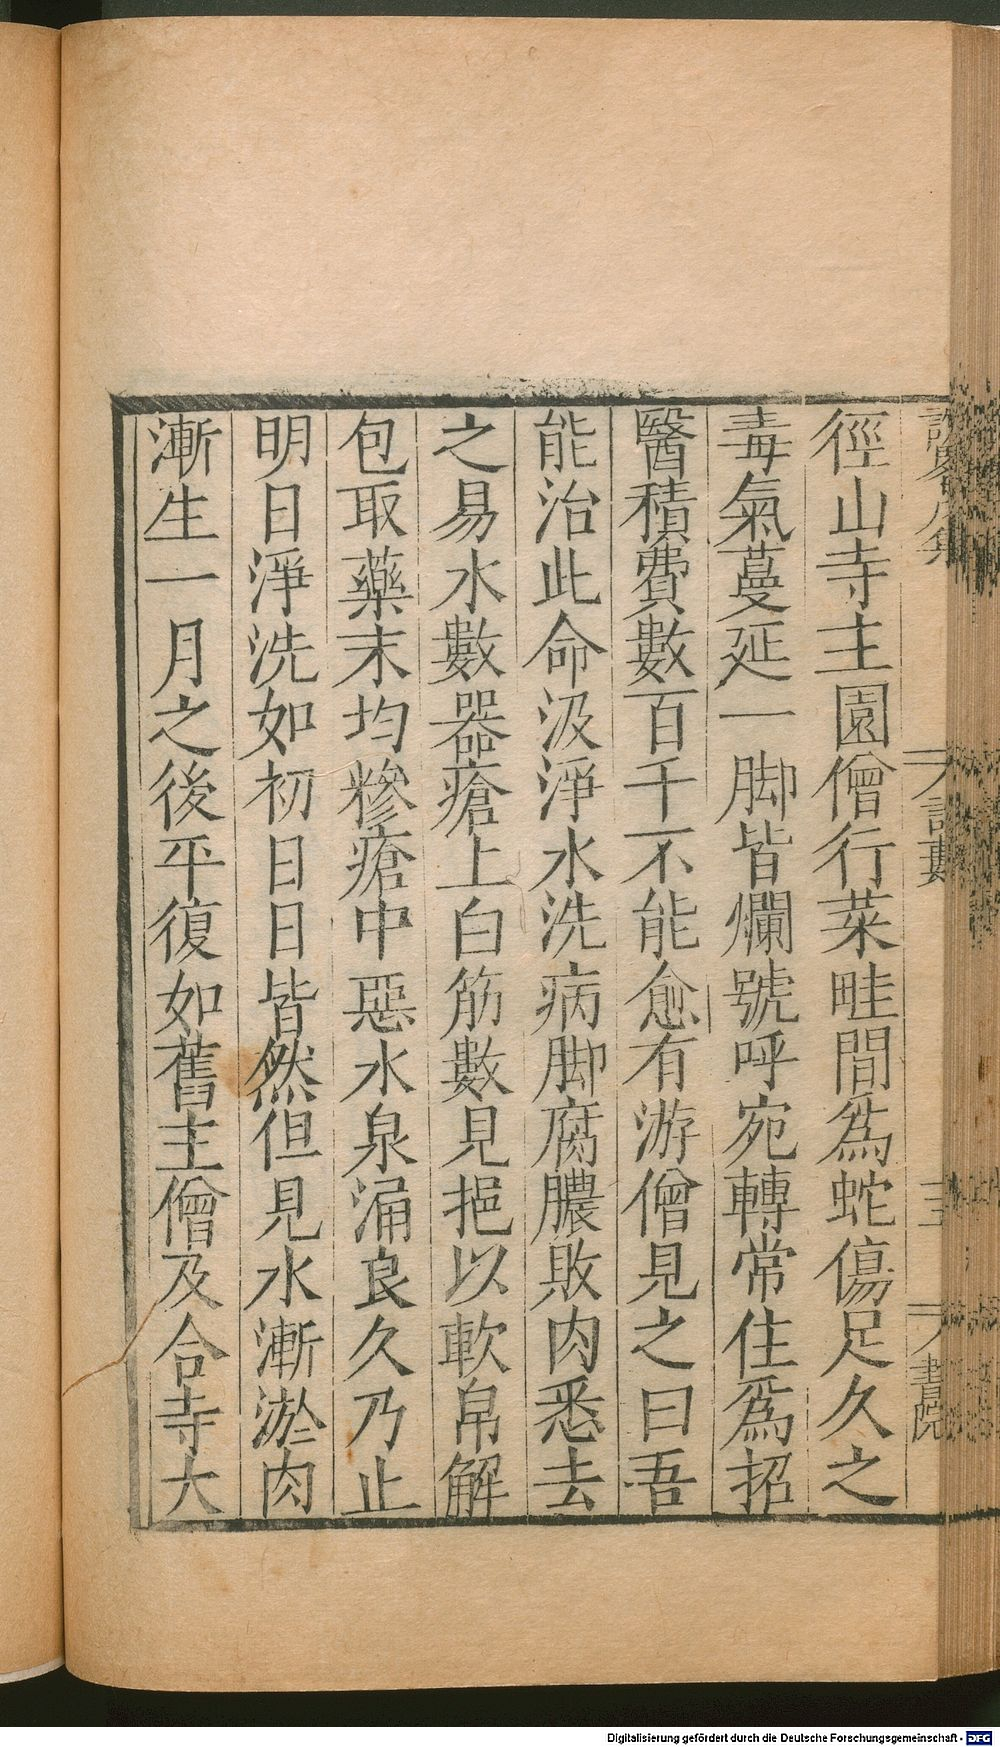 徑山寺主園僧行菜畦間爲蛇傷足久之
毒氣蔓延一脚皆爛號呼宛轉常住爲招
醫積費數百千不能愈有游僧見之曰吾
能治此命汲淨水洗病脚腐膿敗肉悉去
之易水數器瘡上白筋數見挹以軟帛解
包取藥末均糝瘡中惡水泉涌良久乃止
明日淨洗如初日日皆然但見水漸淤肉
漸生一月之後平復如舊主僧及合寺大
Digitalisierung gefördert durch die Deutsche Forschungsgemeinschaft - DFG